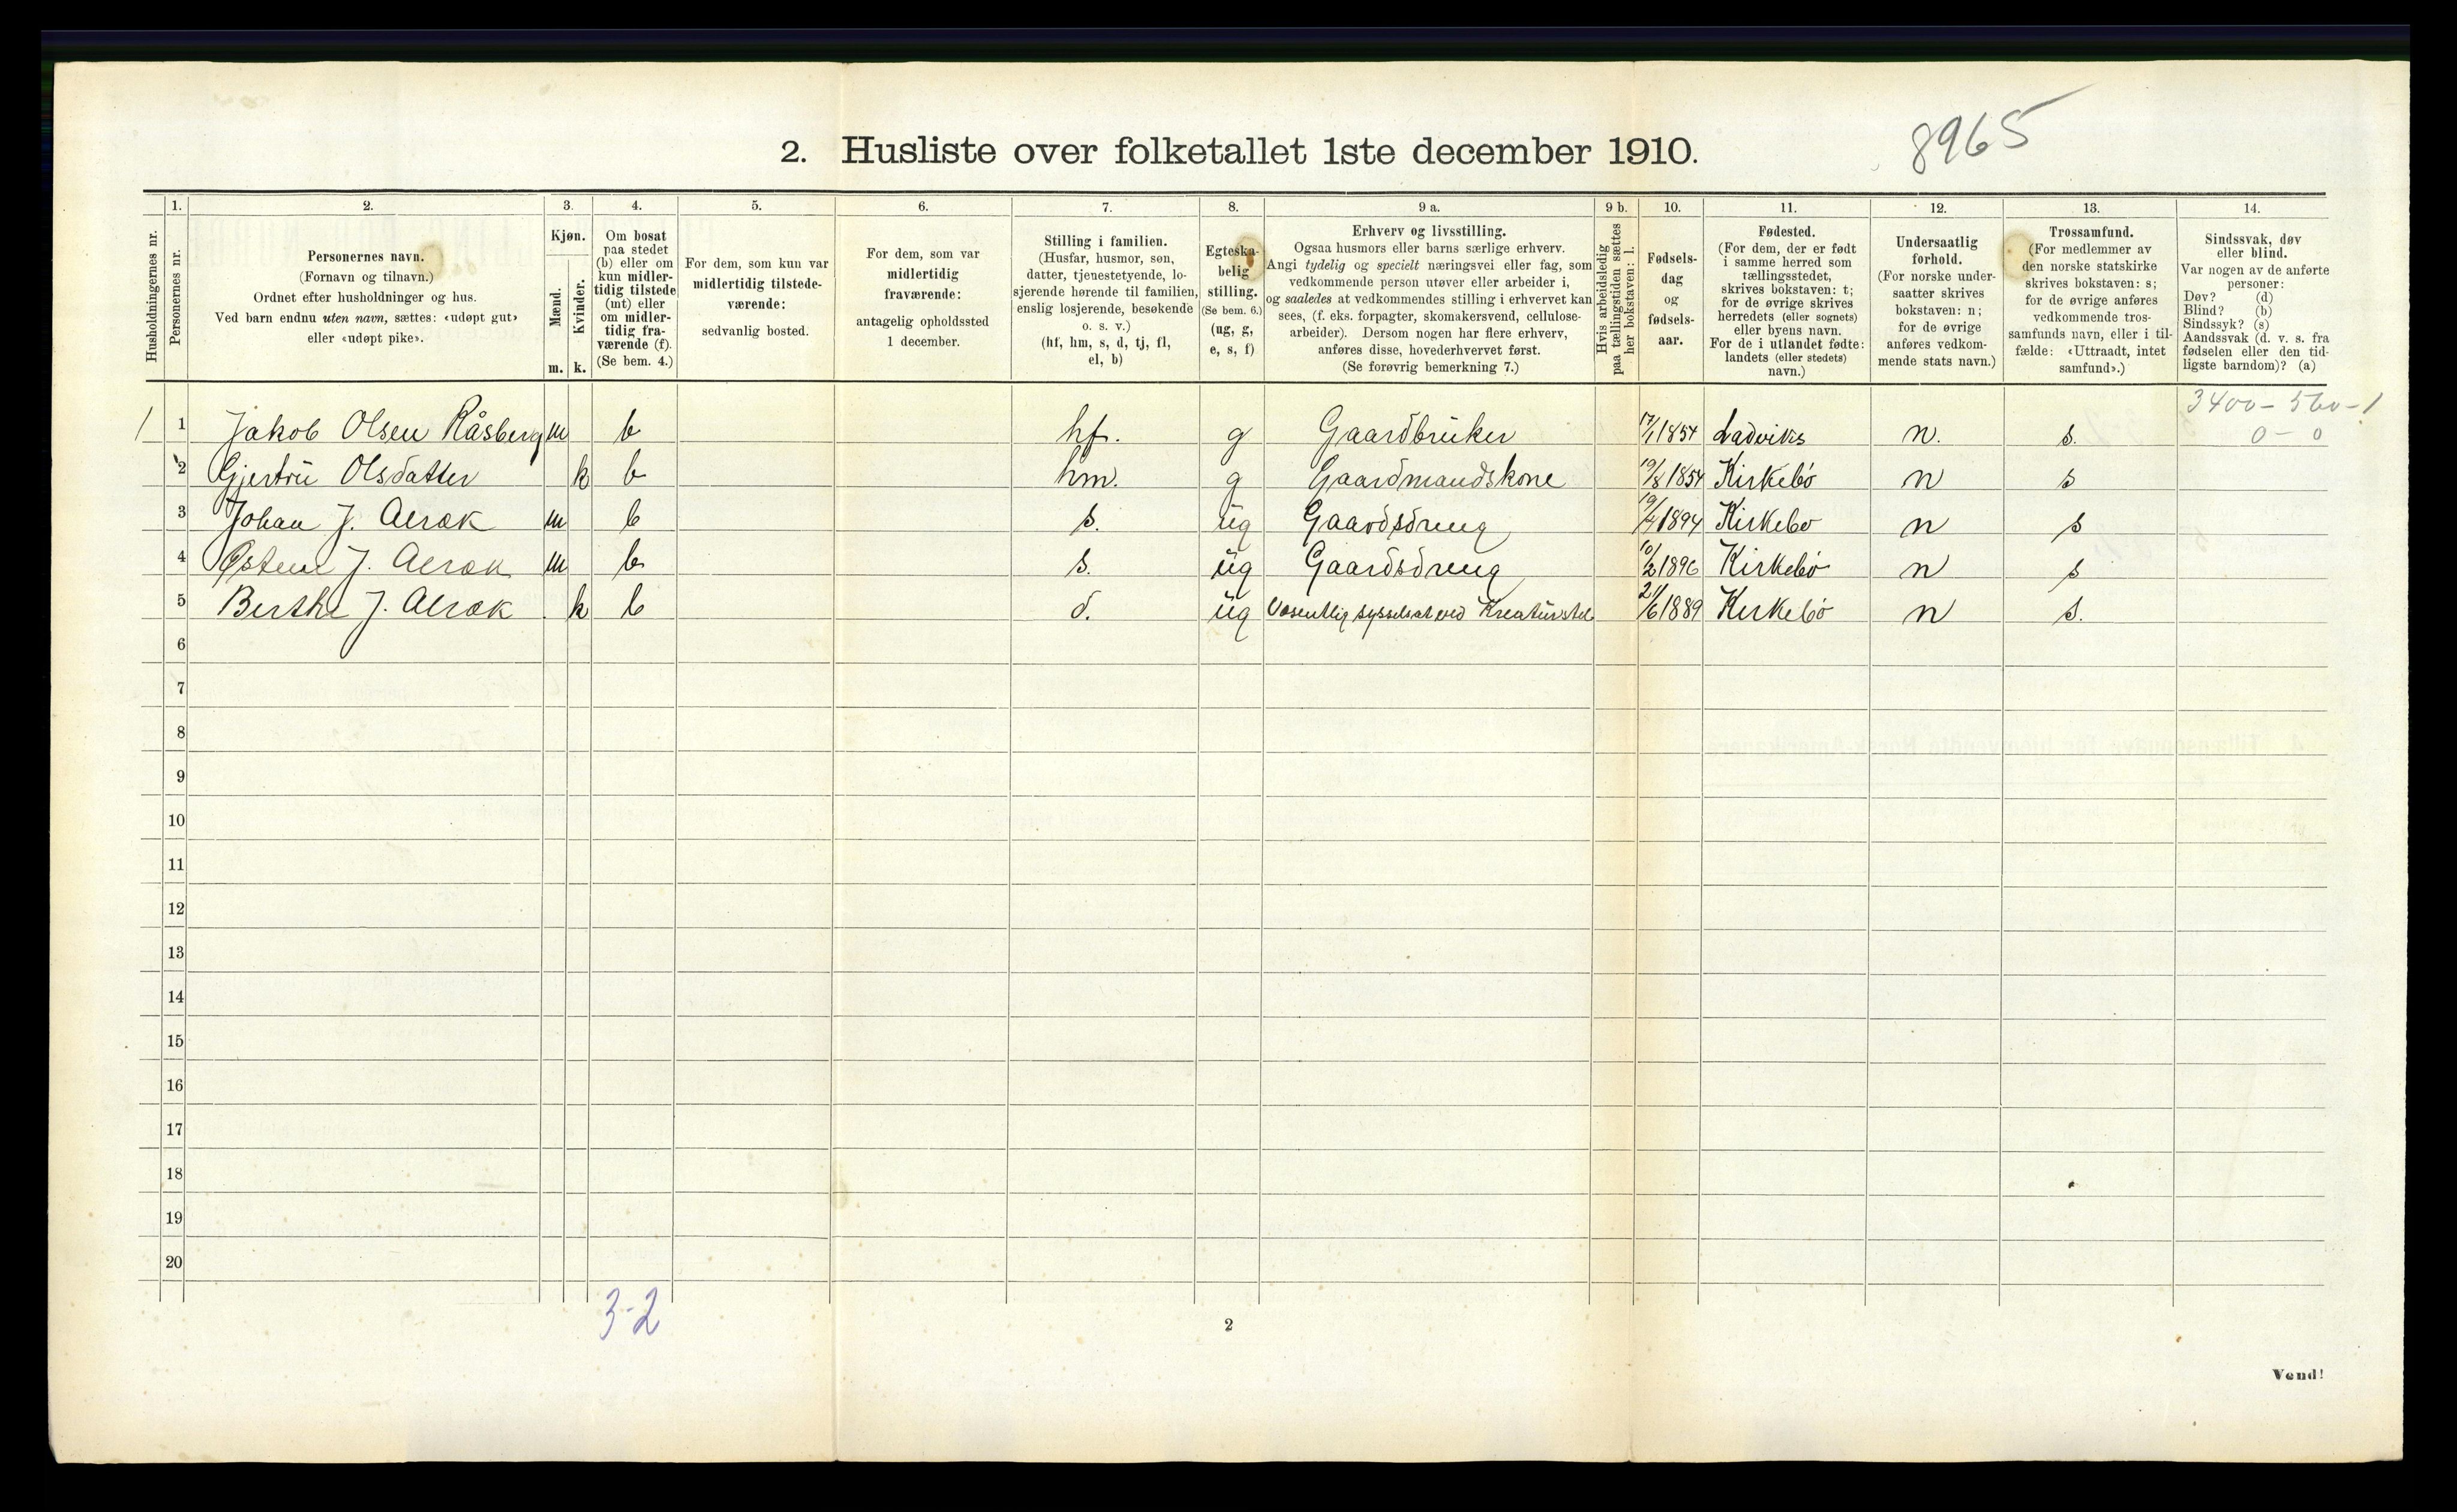 8965
2. Husliste over folketallet 1ste december 1910.
Husholdningernes nr.
1.
Personernes nr.
2.
Personernes navn.
(Fornavn og tilnavn.)
Ordnet efter husholdninger og hus.
Ved barn endnu uten navn, sættes: «udøpt gut»
eller «udøpt pike».
3.
Kjøn.
Mænd.
Kvinder.
m.
k.
4.
Om bosat
paa stedet
(b) eller om
kun midler-
tidig tilstede
(mt) eller
om midler-
tidig fra-
værende (f).
(Se bem. 4.)
5.
For dem, som kun var
midlertidig tilstede-
værende:
sedvanlig bosted.
6.
For dem, som var
midlertidig
fraværende:
antagelig opholdssted
1 december.
7.
Stilling i familien.
(Husfar, husmor, søn,
datter, tjenestetyende, lo-
sjerende hørende til familien,
enslig losjerende, besøkende
o. s. v.)
(hf, hm, s, d, tj, fl,
el, b)
8.
Egteska-
belig
stilling.
(Se bem. 6.)
(ug, g,
e, s, f)
9 a.
Erhverv og livsstilling.
Ogsaa husmors eller barns særlige erhverv.
Angi tydelig og specielt næringsvei eller fag, som
vedkommende person utøver eller arbeider i,
og saaledes at vedkommendes stilling i erhvervet kan
sees, (f. eks. forpagter, skomakersvend, cellulose-
arbeider). Dersom nogen har flere erhverv,
anføres disse, hovederhvervet først.
(Se forøvrig bemerkning 7.)
9 b.
Hvis arbeidsledig
paa tællingstiden sættes
her bokstaven: l.
10.
Fødsels-
dag
og
fødsels-
aar.
11.
Fødested.
(For dem, der er født
i samme herred som
tællingsstedet,
skrives bokstaven: t;
for de øvrige skrives
herredets (eller sognets)
eller byens navn.
For de i utlandet fødte:
landets (eller stedets)
navn.)
12.
Undersaatlig
forhold.
(For norske under-
saatter skrives
bokstaven: n;
for de øvrige
anføres vedkom-
mende stats navn.)
13.
Trossamfund.
(For medlemmer av
den norske statskirke
skrives bokstaven: s;
for de øvrige anføres
vedkommende tros-
samfunds navn, eller i til-
fælde: «Uttraadt, intet
samfund».)
14.
Sindssvak, døv
eller blind.
Var nogen av de anførte
personer:
Døv? (d)
Blind? (b)
Sindssyk? (s)
Aandssvak (d. v. s. fra
fødselen eller den tid-
ligste barndom)? (a)
3400 - 560 - 1
0 - 0
1 1 Jakob Olsen Råsberg m b hf. g Gaardbruker 17/1 1854 Ladviks n. s.
2 Gjertru Olsdatter k b hm. g Gaardmandskone 19/8 1854 Kirkebø n s
3 Johan J. Aeræk m b s. ug Gaardsdreng 19/4 1894 Kirkebø n s
4 Østein J. Aeræk m b s. ug Gaardsdreng 10/2 1896 Kirkebø n s
5 Berthe J. Aeræk k b d. ug Væsentlig sysselsat ved Kreaturstel 21/6 1889 Kirkebø n s.
6
7
8
9
10
11
12
13
14
15
16
17
18
19
20
3-2
2
Vend!